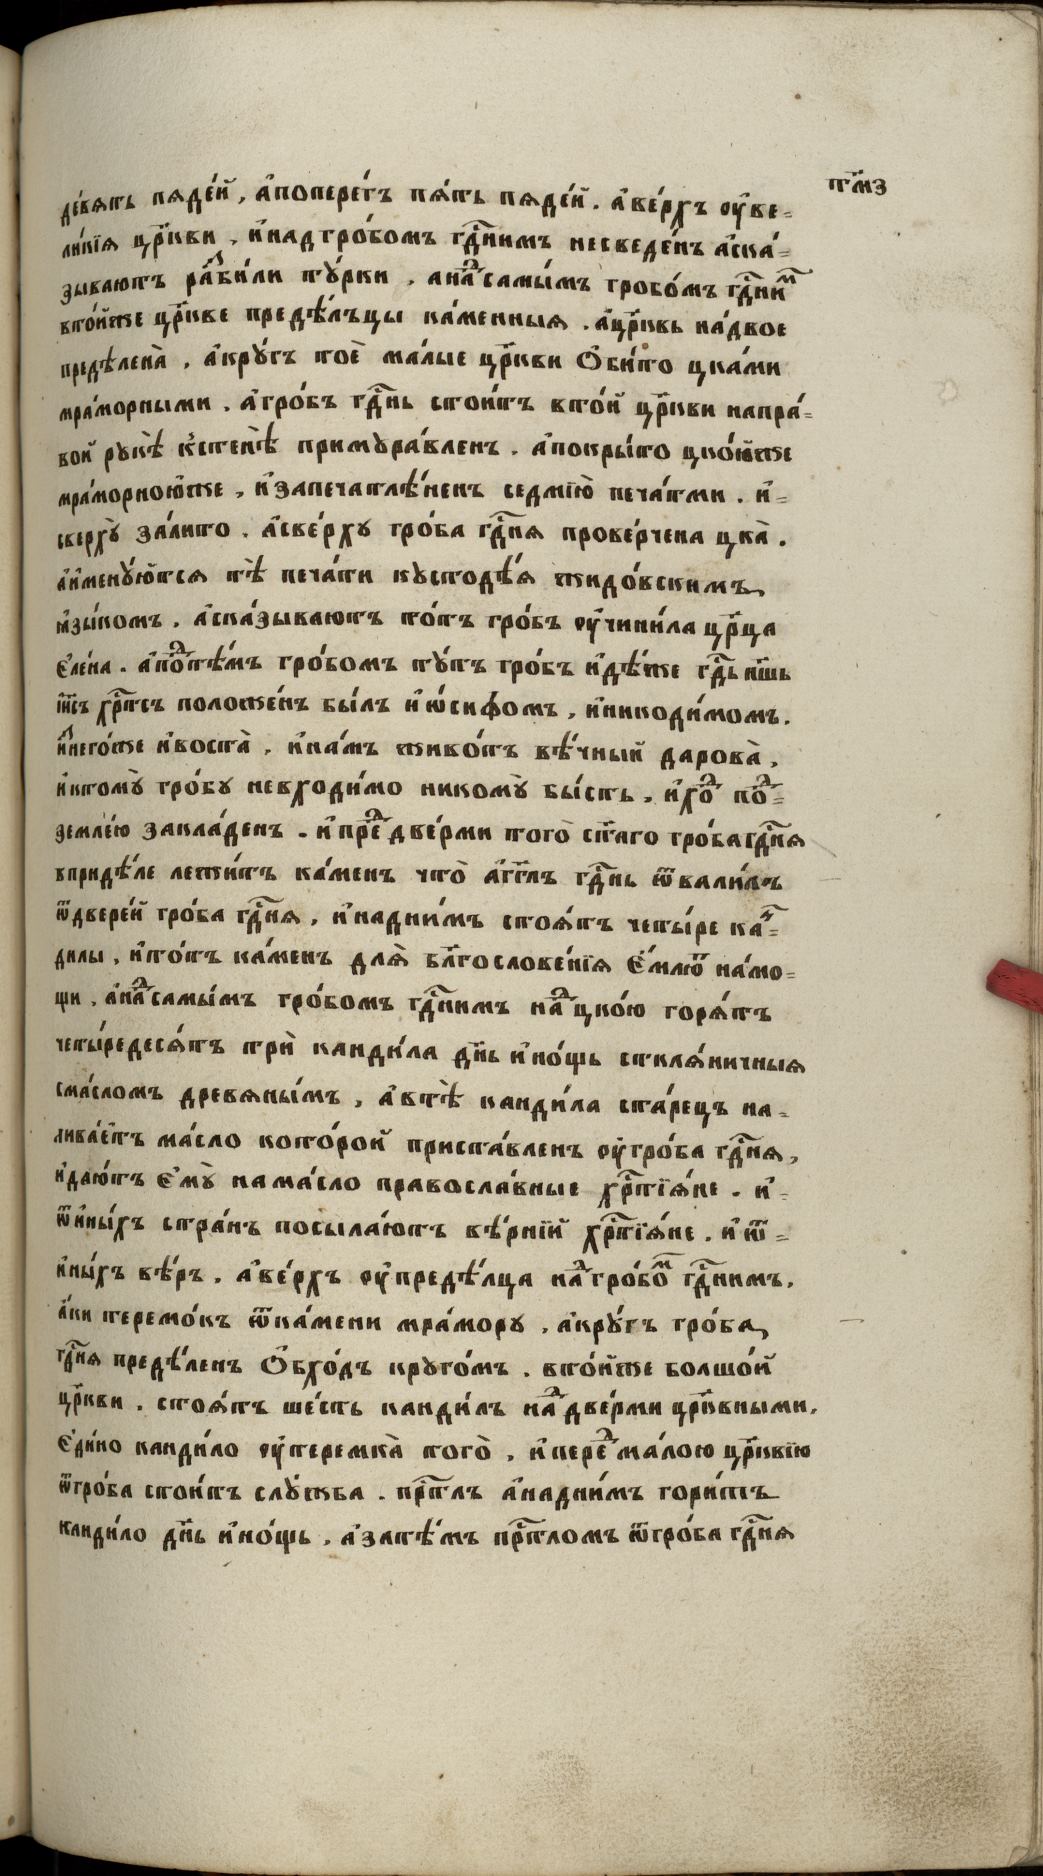 тм҃з
де́вять пяде́й, а҆поперегъ пя́ть пяде́й. а҆ве́рхъ ѹ҆ве-
ли́кїя цр҃кви, и҆над гро́бомъ гдⷭ҇нимъ несведе́нъ а҆ска́-
зываютъ раⷥби́ли ту́рки, анаⷣсамы́мъ гробо́мъ гдⷭ҇ниⷨ
вто́йже цр҃кве предѣ́лъцы ка́менныя. а҆цр҃квь на́двое
предѣлена̀, а҆кру́гъ тоѐ ма́лые цр҃кви ѻ҆би́то цка́ми
мра́морными. а҆гро́бъ гдⷭ҇нь стои́тъ вто́й цр҃кви напра́-
вой рукѣ̀ кстенѣ̀ примура́вленъ. а҆покры́то цко́юже
мра́морноюже, и҆запечатлѣ́ненъ седмїю̀ печа́тми. и҆-
сверхꙋ̀ за́лито. а҆све́рхꙋ гро́ба гдⷭ҇ня прове́рчена цка̀.
а҆именꙋ́ются тѣ̀ печа́ти кꙋстодѣ́я жидо́вскимъ
ꙗ҆зы́комъ. а҆ска́зываютъ то́тъ гро́бъ ѹ҆чини́ла цр҃ца
є҆ле́на. а҆поⷣтѣ́мъ гро́бомъ тꙋ́тъ гро́бъ и҆дѣ́же гдⷭ҇ь н҃шь
і҆и҃съ хрⷭ҇тсъ положе́нъ бы́лъ и҆ѡ́сифомъ, и҆никоди́момъ.
и҆знего́же и҆воста̀, и҆на́мъ живо́тъ вѣ́чный дарова̀,
и҆ктомꙋ̀ гро́бꙋ невходи́мо никомꙋ̀ бы́сть, и҆хоⷣ поⷣ-
земле́ю закла́денъ. и҆преⷣдве́рми того̀ ст҃аго гро́ба гдⷭ҇ня
впридѣ́ле лежи́тъ ка́менъ что̀ а҆́гг҃лъ гдⷭ҇нь ѿвали́лъ
ѿдвере́й гро́ба гдⷭ҇ня, и҆надни́мъ стоя́тъ четы́ре каⷩ-
дилы, и҆то́тъ ка́менъ для̀ бл҃гослове́нїя є҆́млюⷮ на́мо-
щи, а҆наⷣсамы́мъ гро́бомъ гдⷭ҇нимъ наⷣцко́ю горя́тъ
четы́редеся́тъ трѝ канди́ла дн҃ь и҆но́щь скля́ничныя
сма́сломъ древяны́мъ, а҆втѣ̀ канди́ла ста́рецъ на-
лива́етъ ма́сло кото́рой приста́вленъ ѹ҆гро́ба гдⷭ҇ня,
и҆даю́тъ є҆мꙋ̀ нама́сло правосла́вные хрⷭ҇тїя́не. и҆-
ѿи҆ны́хъ стра́нъ посыла́ютъ вѣ́рнїй хрⷭ҇тїя́не. и҆ѿ-
и҆ны́хъ вѣ́ръ. а҆ве́рхъ ѹ҆предѣ́лца наⷣгро́боⷨ гдⷭ҇нимъ.
а҆́ки теремо́къ ѿка́мени мра́морꙋ, а҆крꙋ́гъ гро́ба
гдⷭ҇ня предѣ́ленъ ѻ҆бхо́дъ крꙋго́мъ. вто́йже болшо́й
цр҃кви. стоя́тъ ше́сть канди́лъ наⷣдве́рми цр҃ковными,
є҆ди́но канди́ло ѹ҆теремка̀ того̀, и҆переⷣма́лою цр҃ковїю
ѿгро́ба стои́тъ слꙋ́жба. прⷭ҇тлъ а҆надни́мъ гори́тъ
канди́ло дн҃ь и҆но́щь, а҆затѣ́мъ прⷭ҇тломъ ѿгро́ба гдⷭ҇ня